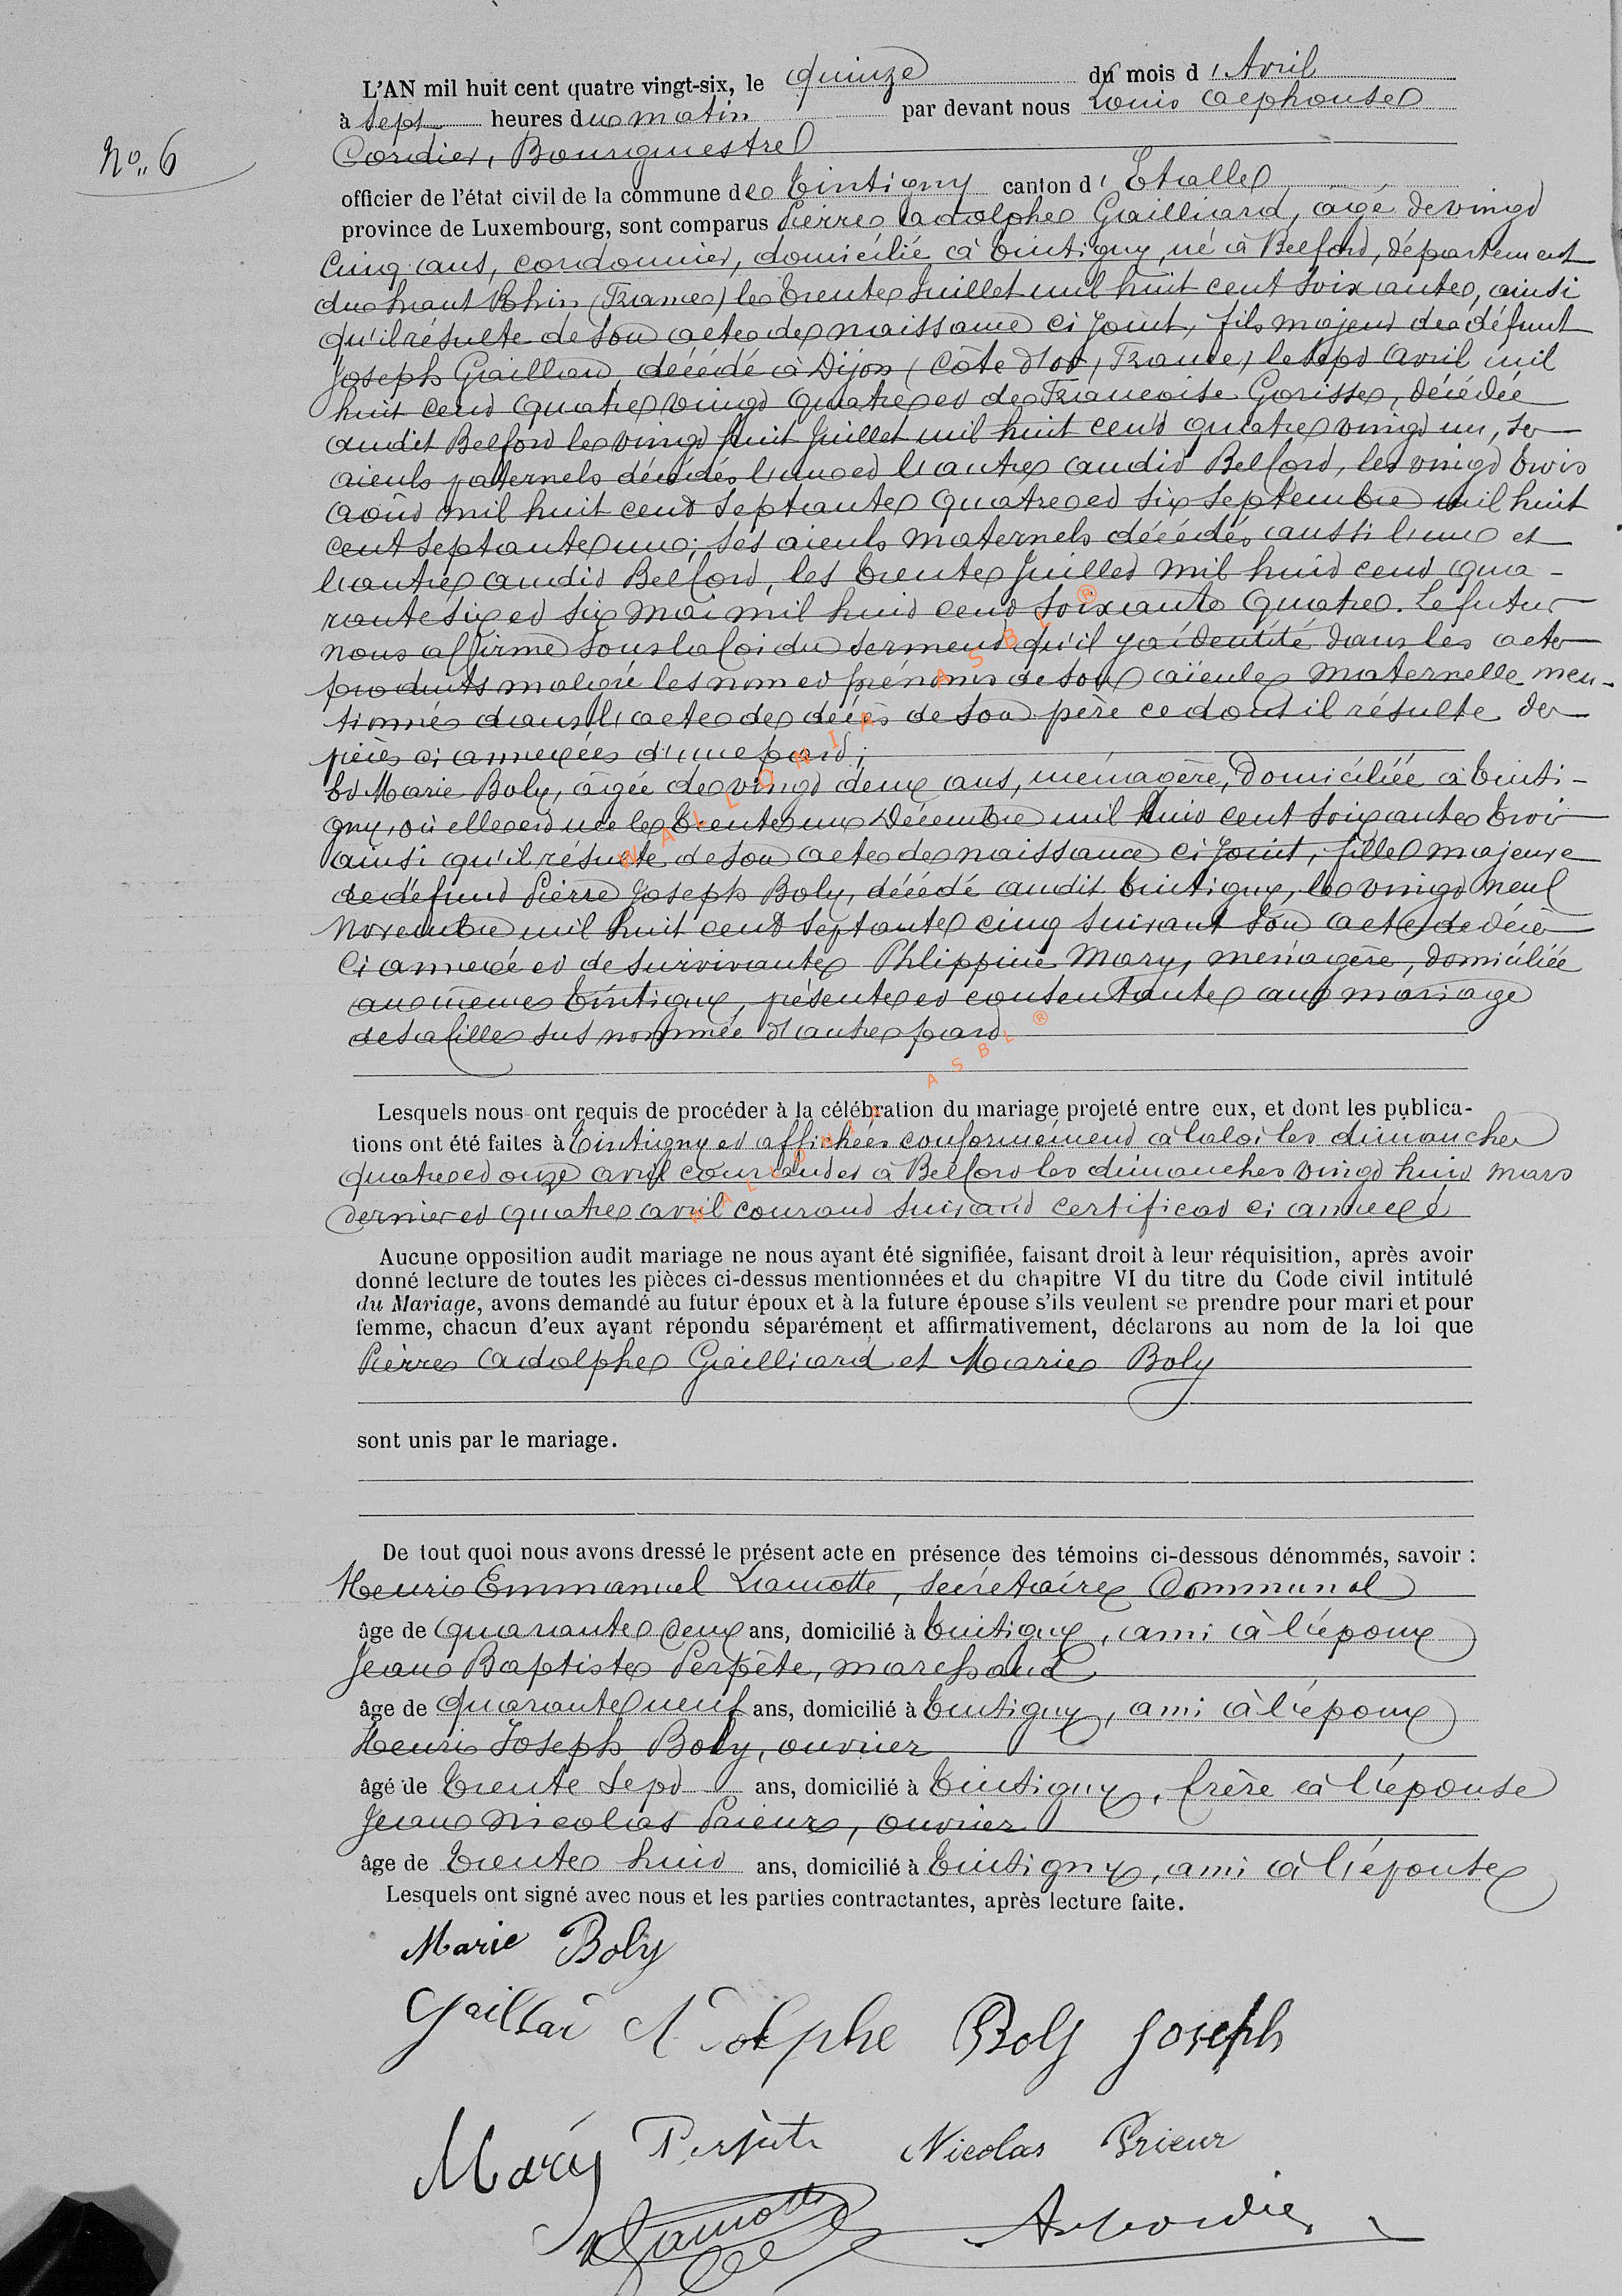 N°. 6
L'AN mil huit cent quatre vingt-six, le quinze du mois d'Avril
à sept heures du matin par devant nous Louis Alphonse
Cordier, Bourgmestre
officier de l'état civil de la commune de Tintigny canton d'Etalle
province de Luxembourg, sont comparus Pierre Adolphe Gailliard, âgé de vingt
cinq ans, cordonnier, domicilié à Tintigny, né à Belfort, département
du haut Rhin (France) le trente Juillet mil huit cent soixante, ainsi
qu'il résulte de son acte de naissance ci joint, fils majeur de défunt
Joseph Gaillard, décédé à Dijon (Côte d'or, France) le sept avril mil
huit cent quatre vingt quatre et de Francoise Gorisse, décédée
audit Belfort le vingt huit Juillet mil huit cent quatre vingt un, ses
aieuls paternels décédés l'un et l'autre audit Belford, les vingt trois
août mil huit cent septante quatre et six septembre mil huit
cent septante un; ses aieuls maternels décédés aussi l'un et
l'autre audit Belford, les trente Juillet mil huit cent qua-
rante six et six mai mil huit cent soixante quatre. Le futur
nous affirme sous la foi du serment qu'il y a identité dans les actes
produits malgré les nom et prénoms de son aïeule maternelle men-
tionnés dans l'acte de décès de son père ce dont il résulte des
pièces ci annexées d'une part;
Et Marie Boly, âgée de vingt deux ans, ménagère, domiciliée à Tinti-
gny, où elle est née le trente un Décembre mil huit cent soixante trois
ainsi qu'il résulte de son acte de naissance ci joint, fille majeure
de défunt Pierre Joseph Boly, décédé audit Tintigny, le vingt neuf
Novembre mil huit cent septante cinq suivant son acte de décès
ci annexé et de survivante Phlippine Mary, ménagère, domiciliée
au même Tintigny, présente et consentante au mariage
de sa fille sus nommée d'autre part
Lesquels nous ont requis de procéder à la célébration du mariage projeté entre eux, et dont les publica-
tions ont été faites à Tintigny et affichées conformément à la loi les dimanches
quatre et onze avril courant et à Belford les dimanches vingt huit mars
dernier et quatre avril courant suivant certificat ci annexé
Aucune opposition audit mariage ne nous ayant été signifiée, faisant droit à leur réquisition, après avoir
donné lecture de toutes les pièces ci-dessus mentionnées et du chapitre VI du titre du Code civil intitulé
du Mariage, avons demandé au futur époux et à la future épouse s'ils veulent se prendre pour mari et pour
femme, chacun d'eux ayant répondu séparément et affirmativement, déclarons au nom de la loi que
Pierre Adolphe Gailliard et Marie Boly
sont unis par le mariage.
De tout quoi nous avons dressé le présent acte en présence des témoins ci-dessous dénommés, savoir :
Henri Emmanuel Lamotte, secrétaire Communal
âge de quarante deux ans, domicilié à Tintigny, ami à l'époux
Jean Baptiste Perpète, marchand
âge de quarante neuf ans, domicilié à Tintigny, ami à l'époux
Henri Joseph Boly, ouvrier
âgé de trente sept ans, domicilié à Tintigny, frère à l'épouse
Jean Nicolas Prieur, ouvrier
âge de trente huit ans, domicilié à Tintigny, ami à l'épouse
Lesquels ont signé avec nous et les parties contractantes, après lecture faite.
Marie Boly
Gaillar Adolphe Boly Joseph
Mary Perpète Nicolas Prieur
Lamotte A. Cordier
WALLONIA ASBL ®
WALLONIA ASBL ®